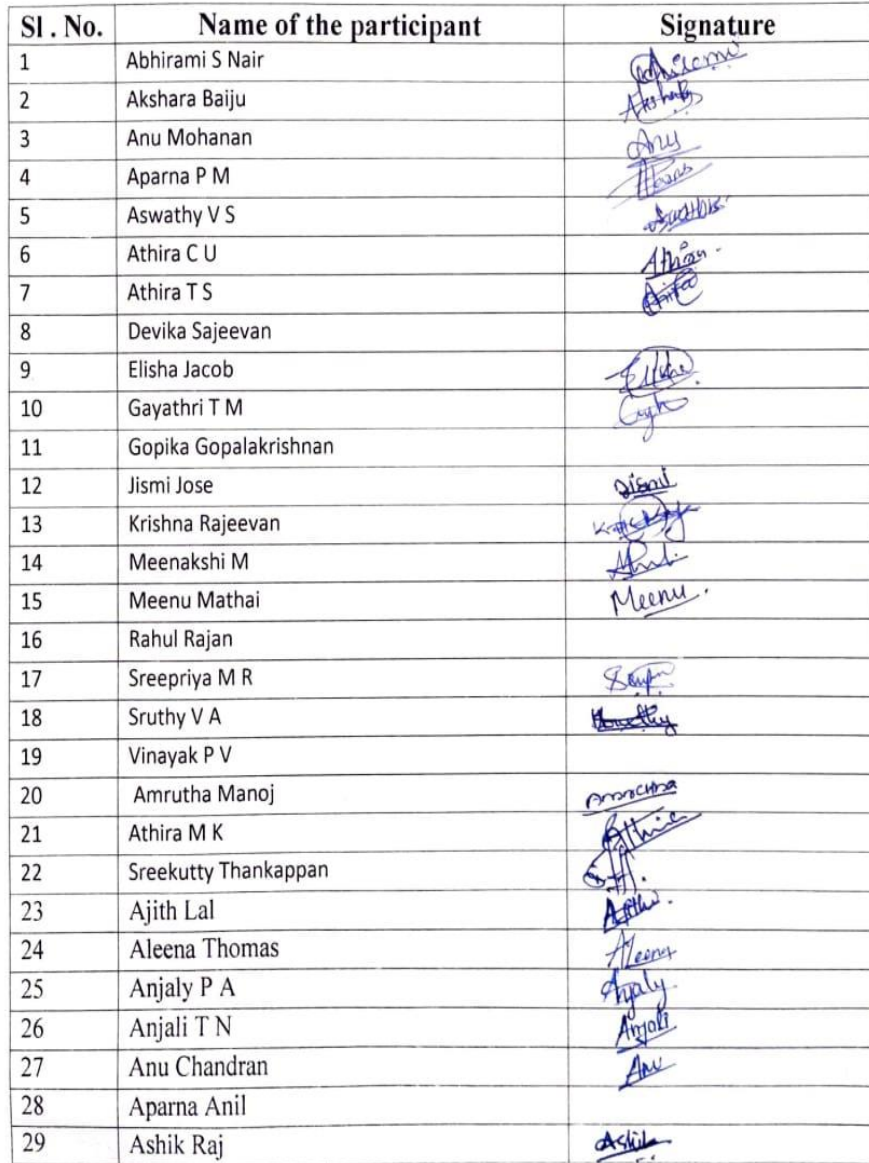 Sl . No. Name of the participant Signature
1 Abhirami S Nair
2 Akshara Baiju
3 Anu Mohanan Anu
4 Aparna P M
5 Aswathy V S
6 Athira C U Athira.
7 Athira T S
8 Devika Sajeevan
9 Elisha Jacob
10 Gayathri T M
11 Gopika Gopalakrishnan
12 Jismi Jose Jismi
13 Krishna Rajeevan
14 Meenakshi M
15 Meenu Mathai Meenu.
16 Rahul Rajan
17 Sreepriya M R
18 Sruthy V A
19 Vinayak P V
20 Amrutha Manoj
21 Athira M K
22 Sreekutty Thankappan
23 Ajith Lal
24 Aleena Thomas Aleena
25 Anjaly P A Anjaly
26 Anjali T N Anjali
27 Anu Chandran Anu
28 Aparna Anil
29 Ashik Raj Ashik